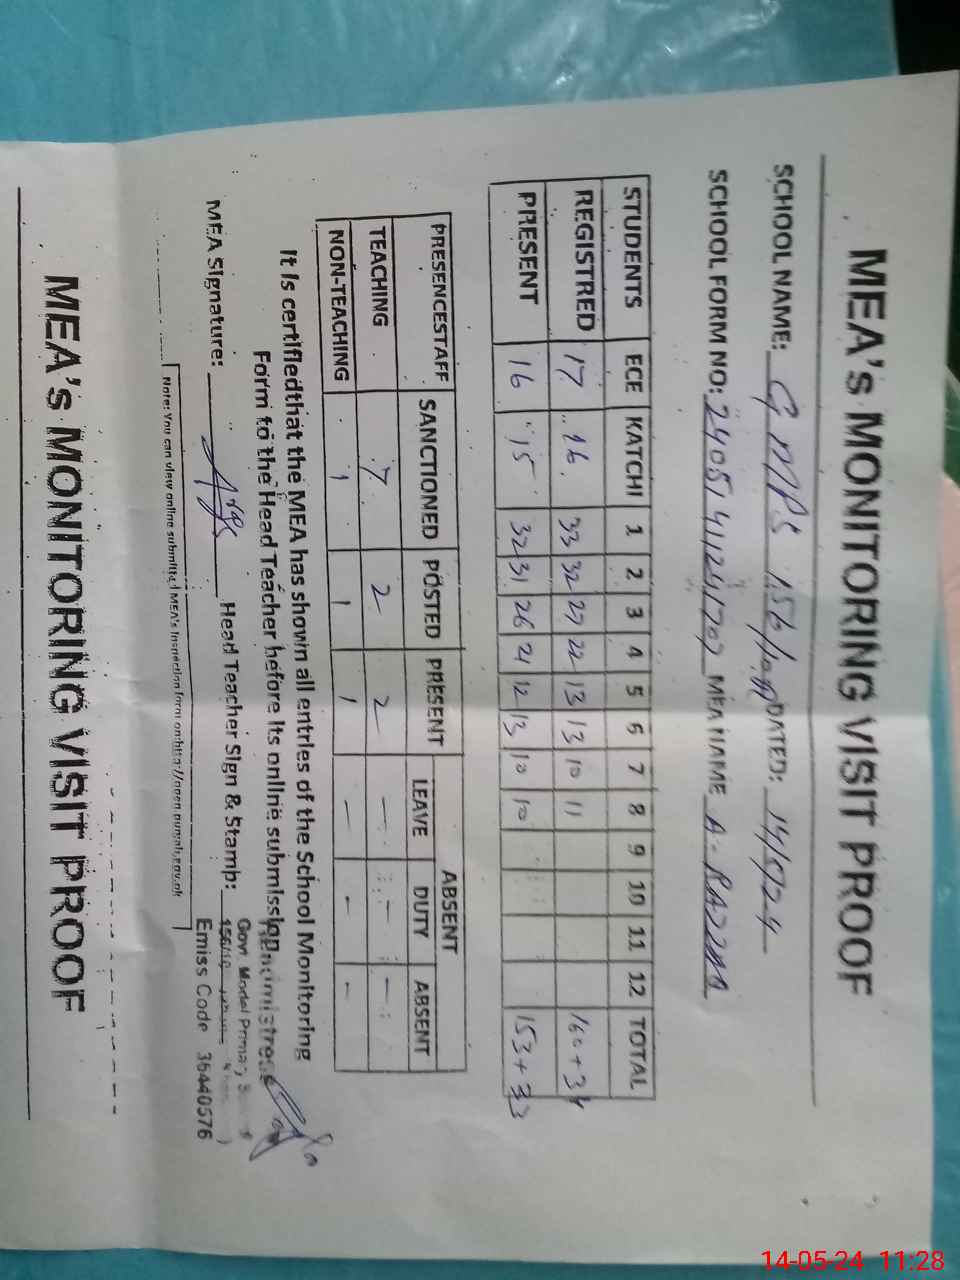 MEA's MONITORING VISIT PROOF
SCHOOL NAME: GMPS 156/ DATED: 14/5/24
SCHOOL FORM NO: MEA NAME A.
STUDENTS ECE KATCHI 1 2 3 4 5 6 7 8 9 10 11 12 TOTAL
REGISTRED 17 16 33 32 27 22 13 13 10 11 160+34
PRESENT 16 15 32 31 26 21 12 13 10 10 153+33
PRESENCESTAFF SANCTIONED POSTED PRESENT ABSENT
LEAVE DUTY ABSENT
TEACHING 7 2 2 — — —
NON-TEACHING 1 1 1 — — —
It is certifiedthat the MEA has shown all entries of the School Monitoring
Form to the Head Teacher before its online submission
MEA Signature: Head Teacher Sign & Stamp:
Headmistress
Govt. Model Primary
Emiss Code 36440576
Note: You can view online submitted MEA's Inspection form on:
MEA's MONITORING VISIT PROOF
14-05-24 11:28